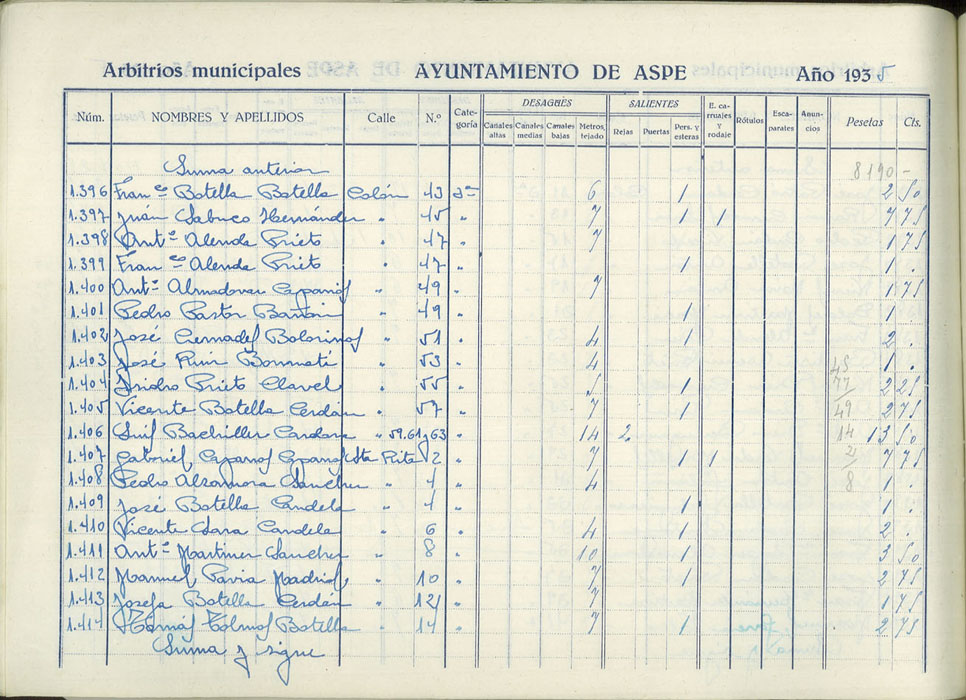 Arbitrios municipales AYUNTAMIENTO DE ASPE Año 1935
Núm. NOMBRES Y APELLIDOS Calle N.º Categoría DESAGÜES Canales altas Canales medias Canales bajas Metros, tejado SALIENTES Rejas Puertas Pers. y esteras E. carruajes y rodaje Rótulos Escaparates Anuncios Pesetas Cts.
Suma anterior 8190 -
1.396 Fran.co Botella Botella Colón 43 2ª 6 1 2 50
1.397 Juán Sabuco Hernández " 45 " 7 1 1 7 75
1.398 Ant.º Alenda Prieto " 47 " 7 1 75
1.399 Fran.co Alenda Prieto " 47 " 1 1 .
1.400 Ant.º Almodovar Caparrós " 49 " 7 1 75
1.401 Pedro Pastor " 49 " 1 1 .
1.402 José Cremades Bolorinos " 51 " 4 1 2 .
1.403 José Ruiz Bonmatí " 53 " 4 1 .
1.404 Isidro Prieto Clavel " 55 " 5 1 2 25
1.405 Vicente Botella Cerdán " 57 " 7 1 2 75
1.406 Luis Bachiller Cardona " 59. 61 y 63 " 14 2 13 50
1.407 Gabriel Caparrós Caparrós Sta Rita 2 " 7 1 1 7 75
1.408 Pedro Alzamora Sanchez " 4 " 4 1 .
1.409 José Botella Candela " 4 " 1 1 .
1.410 Vicente Lara Candela " 6 " 4 1 2 .
1.411 Ant.º Martinez Sanchez " 8 " 10 1 3 50
1.412 Manuel Pavia " 10 " 7 1 2 75
1.413 Josefa Botella Cerdán " 12 " 7 1 75
1.414 Tomás Tolmos Botella " 14 " 7 1 2 75
Suma y sigue